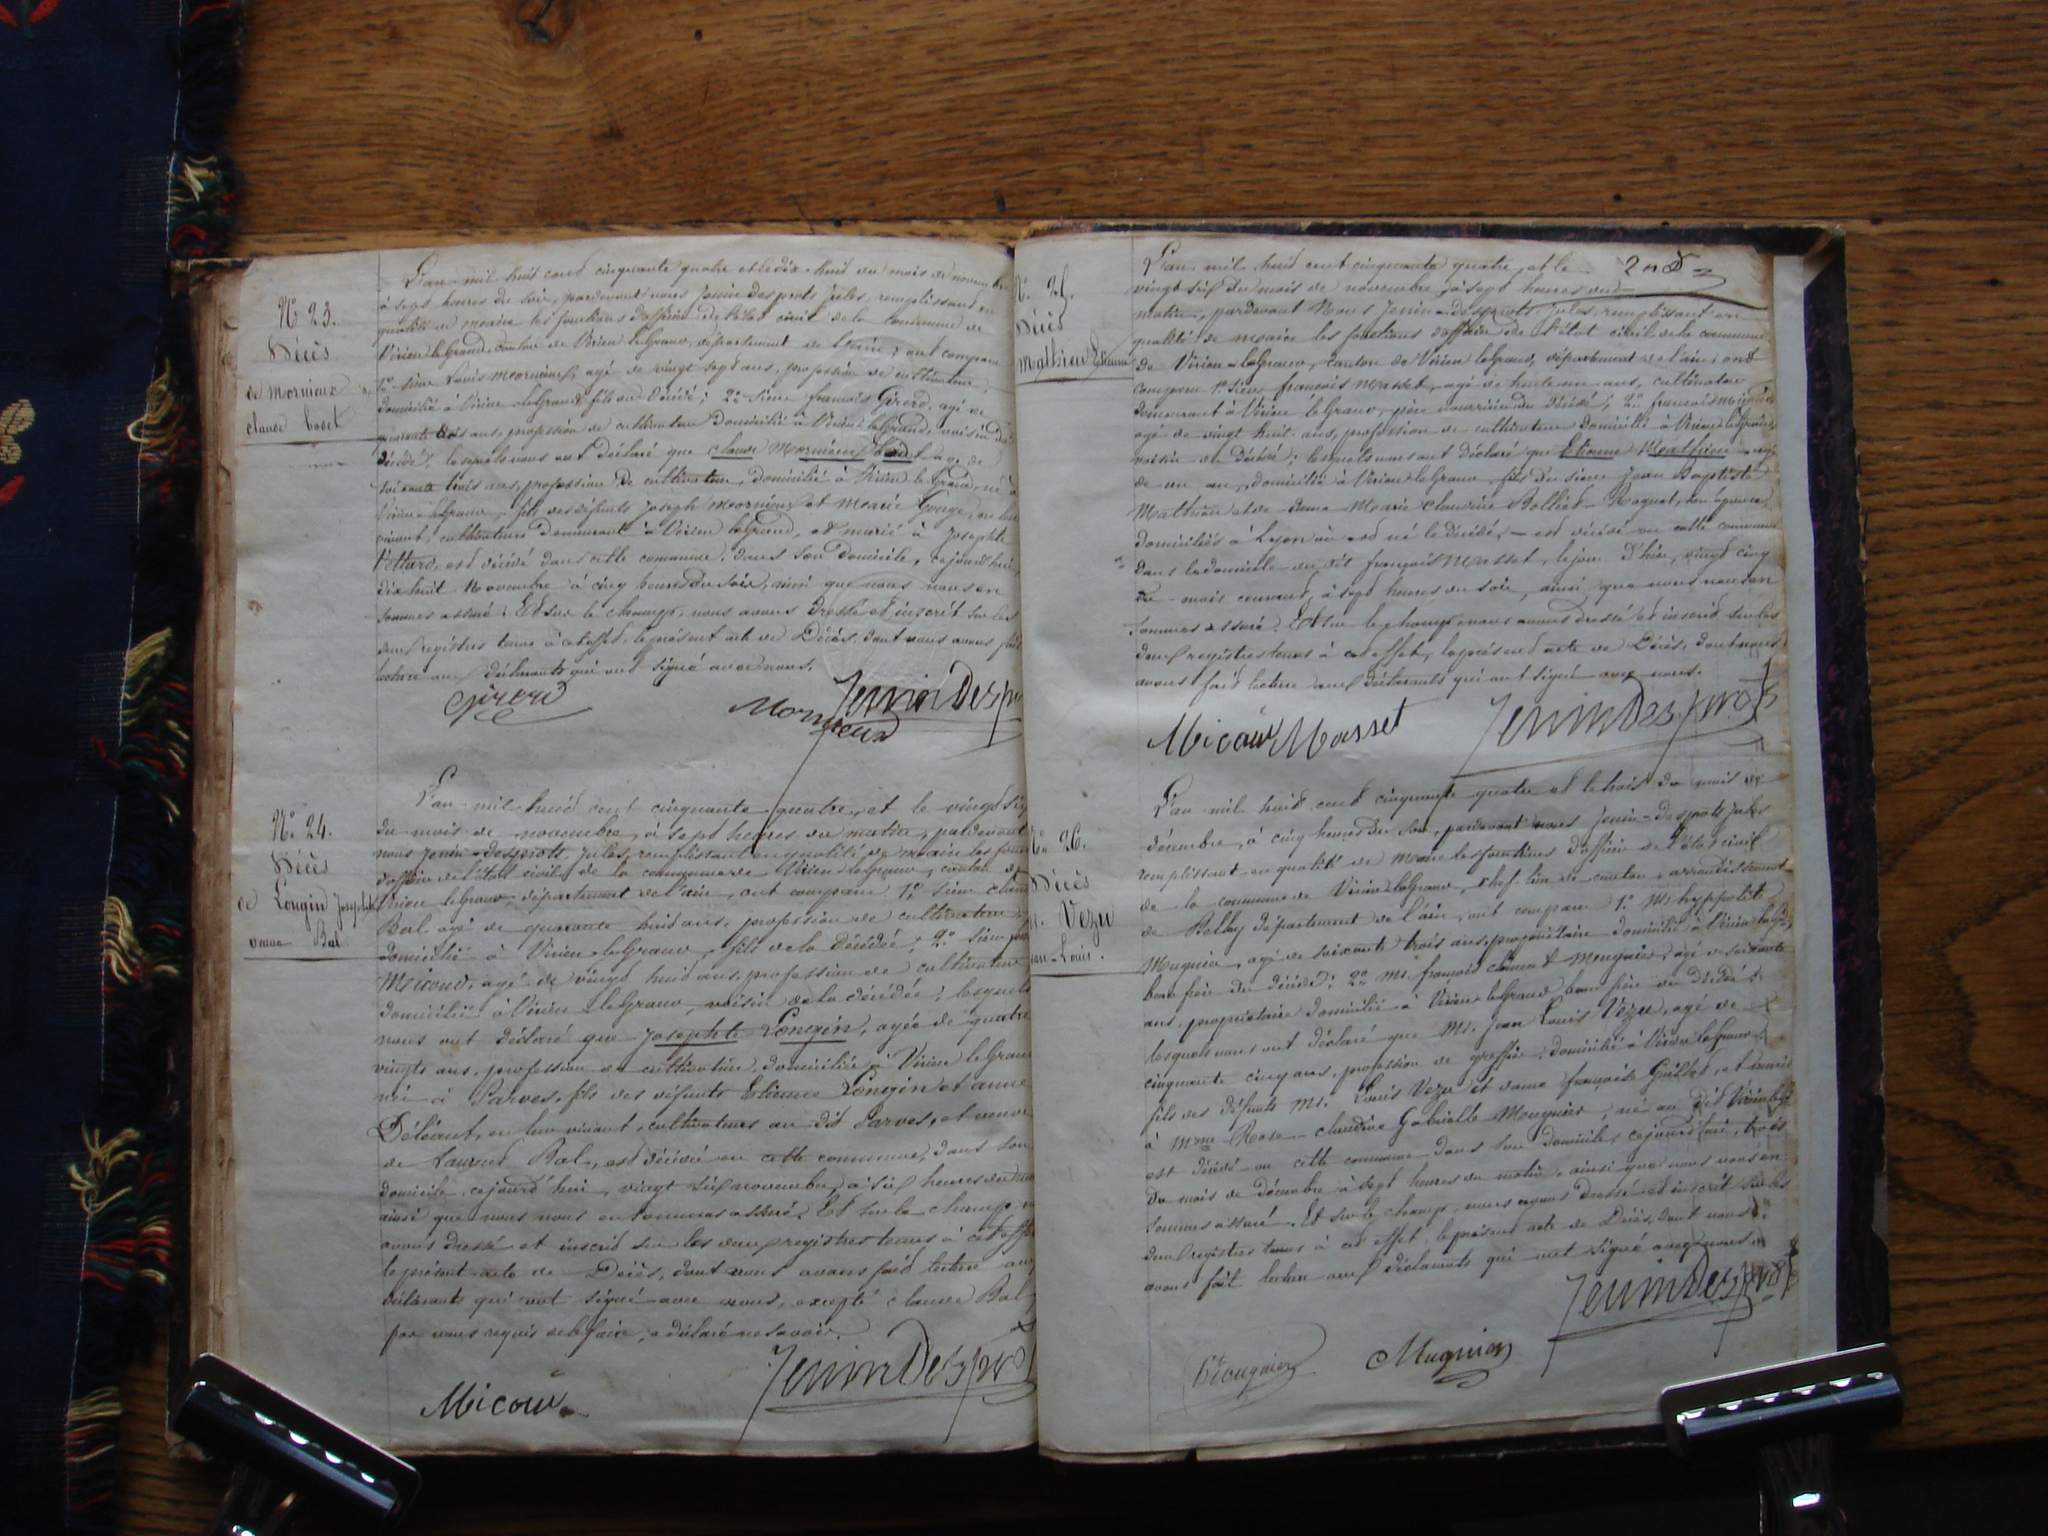 N° 23.
Décès
de Mornieux
claude cadet
L'an mil huit cent cinquante quatre et le dix-huit du mois de novembre
à sept heures du soir, pardevant nous Jenin desprots Jules, remplissant en
qualité de maire les fonctions d'officier de l'état civil de la commune de
Virieu le Grand, canton de Virieu le Grand, département de l'ain; ont comparu
1° sieur Louis Mornieux, agé de vingt sept ans, profession de cultivateur,
domicilié à Virieu le Grand fils du décédé; 2° sieur françois Girerd, agé de
quarante trois ans, profession de cultivateur domicilié à Virieu le Grand, voisin du
décédé; lesquels nous ont déclaré que claude Mornieux cadet agé de
soixante trois ans, profession de cultivateur, domicilié à Virieu le Grand, né à
Virieu le Grand, fils des défunts Joseph Mornieux et Marie Gonge, en leur
vivant, cultivateurs demeurant à Virieu le Grand, et marié à Josephte
Vettard, est décédé dans cette commune, dans son domicile, cejourd'hui,
dix huit Novembre à cinq heures du soir, ainsi que nous nous en
sommes assuré. Et sur le champ, nous avons dressé et inscrit sur les
deux registres tenus à cet effet, le présent acte de Décès, dont nous avons fait
lecture aux déclarants qui ont signé avec nous.
Girerd Mornieux Jenin Despr
N° 24.
Décès
de Longin Josephte
veuve Bal
L'an mil huit cent cinquante quatre, et le vingt six
du mois de novembre, à sept heures du matin, pardevant
nous Jenin-desprots Jules, remplissant en qualité de maire les fonc
d'officier de l'état civil de la commune de Virieu le Grand, canton de
Virieu le Grand, département de l'ain, ont comparu 1° sieur claude
Bal agé de quarante huit ans, profession de cultivateur
domicilié à Virieu le Grand, fils de la décédée; 2° sieur
Micoud, agé de vingt huit ans, profession de cultivateur
domicilié à Virieu le Grand, voisin de la décédée; lesquels
nous ont déclaré que Josephte Longin, agée de quatre
vingts ans, profession de cultivatrice, domiciliée à Virieu le Grand
née à Parves, fille des défunts Etienne Longin et anne
Déléaut, en leur vivant, cultivateurs au dit Parves, et veuve
de Laurent Bal, est décédée en cette commune, dans son
domicile, cejourd'hui, vingt six novembre à six heures du ma
ainsi que nous nous en sommes assuré. Et sur le champ n
avons dressé et inscrit sur les deux registres tenus à cet effet
le présent acte de Décès, dont nous avons fait lecture aux
déclarants qui ont signé avec nous, excepté claude Bal
par nous requis de le faire, a déclaré ne savoir.
Micoud Jenin Despro
N° 25.
Décès
Mathieu Etienne
L'an mil huit cent cinquante quatre, et le
vingt six du mois de novembre, à sept heures du
matin, pardevant Nous Jenin-desprots Jules remplissant en
qualité de maire les fonctions d'officier de l'état civil de la commune
de Virieu le Grand, canton de Virieu le Grand, département de l'ain; ont
comparu 1° sieur françois Masset, agé de trente un ans, cultivateur
demeurant à Virieu le Grand, père nourricier du décédé; 2° françois Micoud
agé de vingt huit ans, profession de cultivateur domicilié à Virieu le Grand,
voisin du décédé; lesquels nous ont déclaré que Etienne Mathieu agé
de un an, domicilié à Virieu le Grand, fils du sieur Jean Baptiste
Mathieu et de dame Marie claudine Bolliet
domiciliés à Lyon où est né le décédé, est décédé en cette commune
dans le domicile du dit françois Masset, le jour d'hier, vingt cinq
du mois courant, à sept heures du soir, ainsi que nous nous en
sommes assuré. Et sur le champ nous avons dressé et inscrit sur les
deux registres tenus à cet effet, le présent acte de Décès, dont nous
avons fait lecture aux déclarants qui ont signé avec nous.
Micoud Masset Jenin Desprots
N° 26.
Décès
Vezu
Jean-Louis.
L'an mil huit cent cinquante quatre et le trois du mois de
décembre, à cinq heures du soir, pardevant nous Jenin-Desprots Jules
remplissant en qualité de Maire les fonctions d'officier de l'état civil
de la commune de Virieu le Grand, chef-lieu de canton, arrondissement
de Belley département de l'ain, ont comparu 1° Mr hyppolite
Mugnier, agé de soixante trois ans, propriétaire domicilié à Virieu le Gd,
beau frère du décédé; 2° Mr. françois clément Mugnier, agé de soixante
ans, propriétaire domicilié à Virieu le Grand, beau frère du décédé
lesquels nous ont déclaré que Mr. Jean Louis Vezu, agé de
cinquante cinq ans, profession de greffier, domicilié à Virieu le Grand
fils des défunts Mr. Louis Vezu et dame françoise Guillot, et marié
à Mme Rose claudine Gabrielle Mugnier, né au dit Virieu le Gd
est décédé en cette commune dans son domicile, cejourd'hui, trois
du mois de Décembre à sept heures du matin, ainsi que nous nous en
sommes assuré. Et sur le champ, nous avons dressé et inscrit sur les
deux registres tenus à cet effet, le présent acte de Décès, dont nous
avons fait lecture aux déclarants qui ont signé avec nous.
Jenin Desprots
Mugnier Mugnier